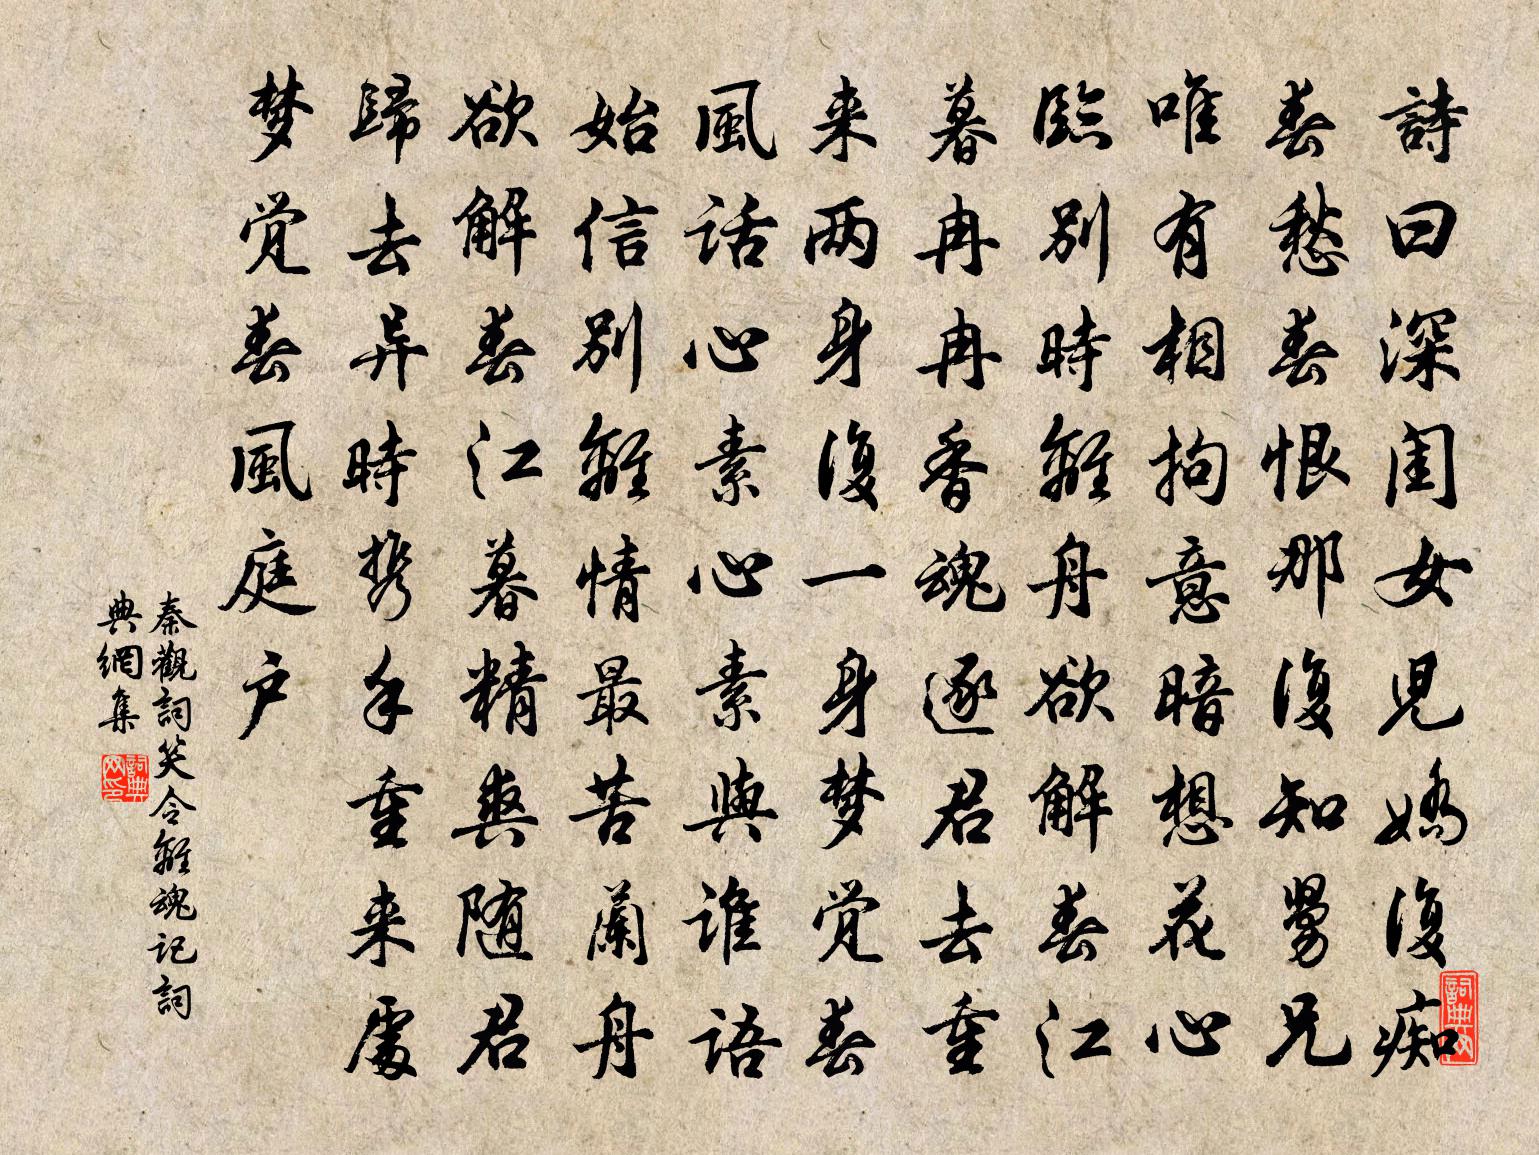 詩曰深闺女児嬌復痴
春愁春恨那復知舅兄
唯有相拘意暗想花心
臨别時離舟欲解春江
暮冉冉香魂逐君去重
来两身復一身梦觉春
風话心素心素與谁語
始信别離情最苦蘭舟
欲解春江暮精爽随君
歸去异時携手重来處
梦觉春風庭户
秦觀詞笑令離魂记詞
典網集
詞典网印
詞典网